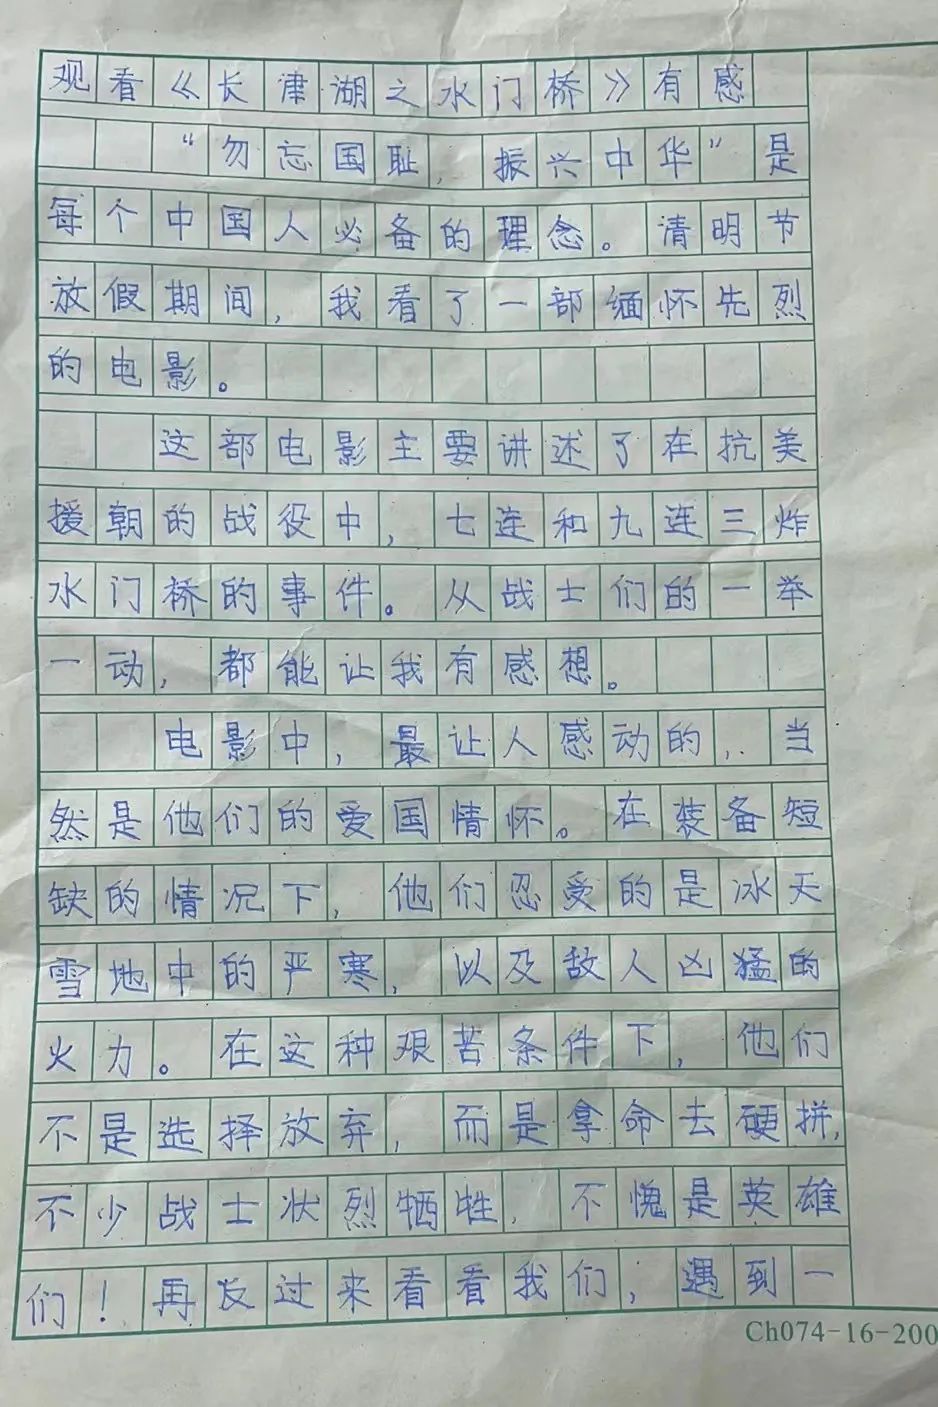 观看《长津湖之水门桥》有感
“勿忘国耻,振兴中华”是
每个中国人必备的理念。清明节
放假期间,我看了一部缅怀先烈
的电影。
这部电影主要讲述了在抗美
援朝的战役中,七连和九连三炸
水门桥的事件。从战士们的一举
一动,都能让我有感想。
电影中,最让人感动的,当
然是他们的爱国情怀。在装备短
缺的情况下,他们忍受的是冰天
雪地中的严寒,以及敌人凶猛的
火力。在这种艰苦条件下,他们
不是选择放弃,而是拿命去硬拼,
不少战士状烈牺牲,不愧是英雄
们!再反过来看看我们,遇到一
Ch074-16-200